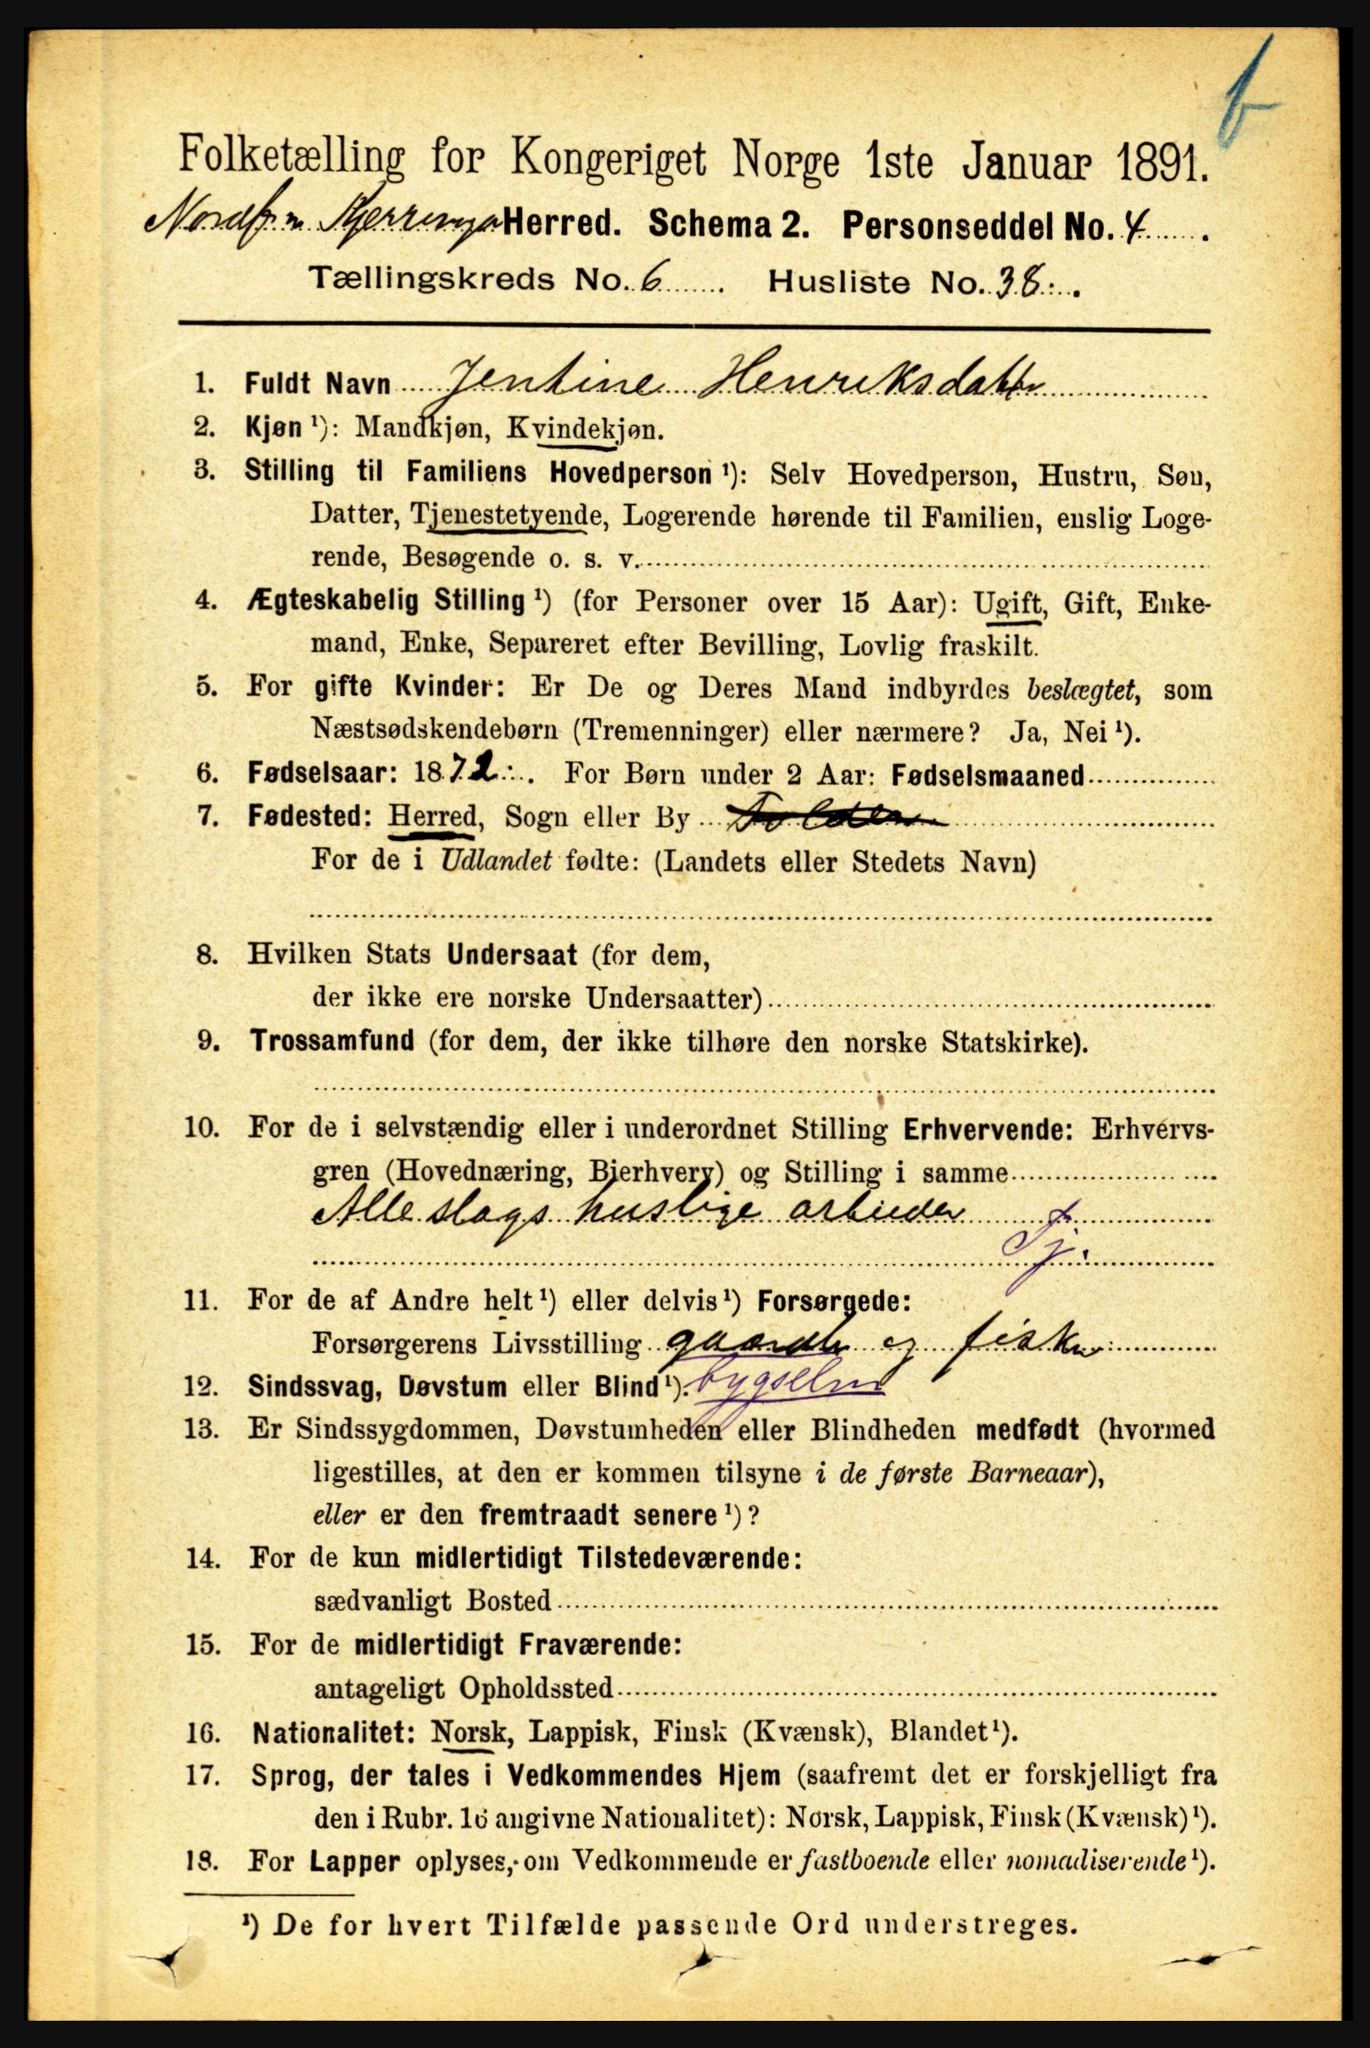 b
Folketælling for Kongeriget Norge 1ste Januar 1891.
Kjerringø Herred. Schema 2. Personseddel No. 4.
Tællingskreds No. 6. Husliste No. 38.
1. Fuldt Navn Jentine Henriksdatter
2. Kjøn ¹): Mandkjøn, Kvindekjøn.
3. Stilling til Familiens Hovedperson ¹): Selv Hovedperson, Hustru, Søn,
Datter, Tjenestetyende, Logerende hørende til Familien, enslig Loge-
rende, Besøgende o. s. v.
4. Ægteskabelig Stilling ¹) (for Personer over 15 Aar): Ugift, Gift, Enke-
mand, Enke, Separeret efter Bevilling, Lovlig fraskilt.
5. For gifte Kvinder: Er De og Deres Mand indbyrdes beslægtet, som
Næstsødskendebørn (Tremenninger) eller nærmere? Ja, Nei ¹).
6. Fødselsaar: 1872. For Børn under 2 Aar: Fødselsmaaned
7. Fødested: Herred, Sogn eller By Folden
For de i Udlandet fødte: (Landets eller Stedets Navn)
8. Hvilken Stats Undersaat (for dem,
der ikke ere norske Undersaatter)
9. Trossamfund (for dem, der ikke tilhøre den norske Statskirke).
10. For de i selvstændig eller i underordnet Stilling Erhvervende: Erhvervs-
gren (Hovednæring, Bierhverv) og Stilling i samme
Alle slags huslige arbeider
Tj.
11. For de af Andre helt ¹) eller delvis ¹) Forsørgede:
Forsørgerens Livsstilling gaardb og fisker
12. Sindssvag, Døvstum eller Blind ¹).
13. Er Sindssygdommen, Døvstumheden eller Blindheden medfødt (hvormed
ligestilles, at den er kommen tilsyne i de første Barneaar),
eller er den fremtraadt senere ¹)?
14. For de kun midlertidigt Tilstedeværende:
sædvanligt Bosted
15. For de midlertidigt Fraværende:
antageligt Opholdssted
16. Nationalitet: Norsk, Lappisk, Finsk (Kvænsk), Blandet ¹).
17. Sprog, der tales i Vedkommendes Hjem (saafremt det er forskjelligt fra
den i Rubr. 16 angivne Nationalitet): Norsk, Lappisk, Finsk (Kvænsk) ¹).
18. For Lapper oplyses, om Vedkommende er fastboende eller nomadiserende ¹).
¹) De for hvert Tilfælde passende Ord understreges.